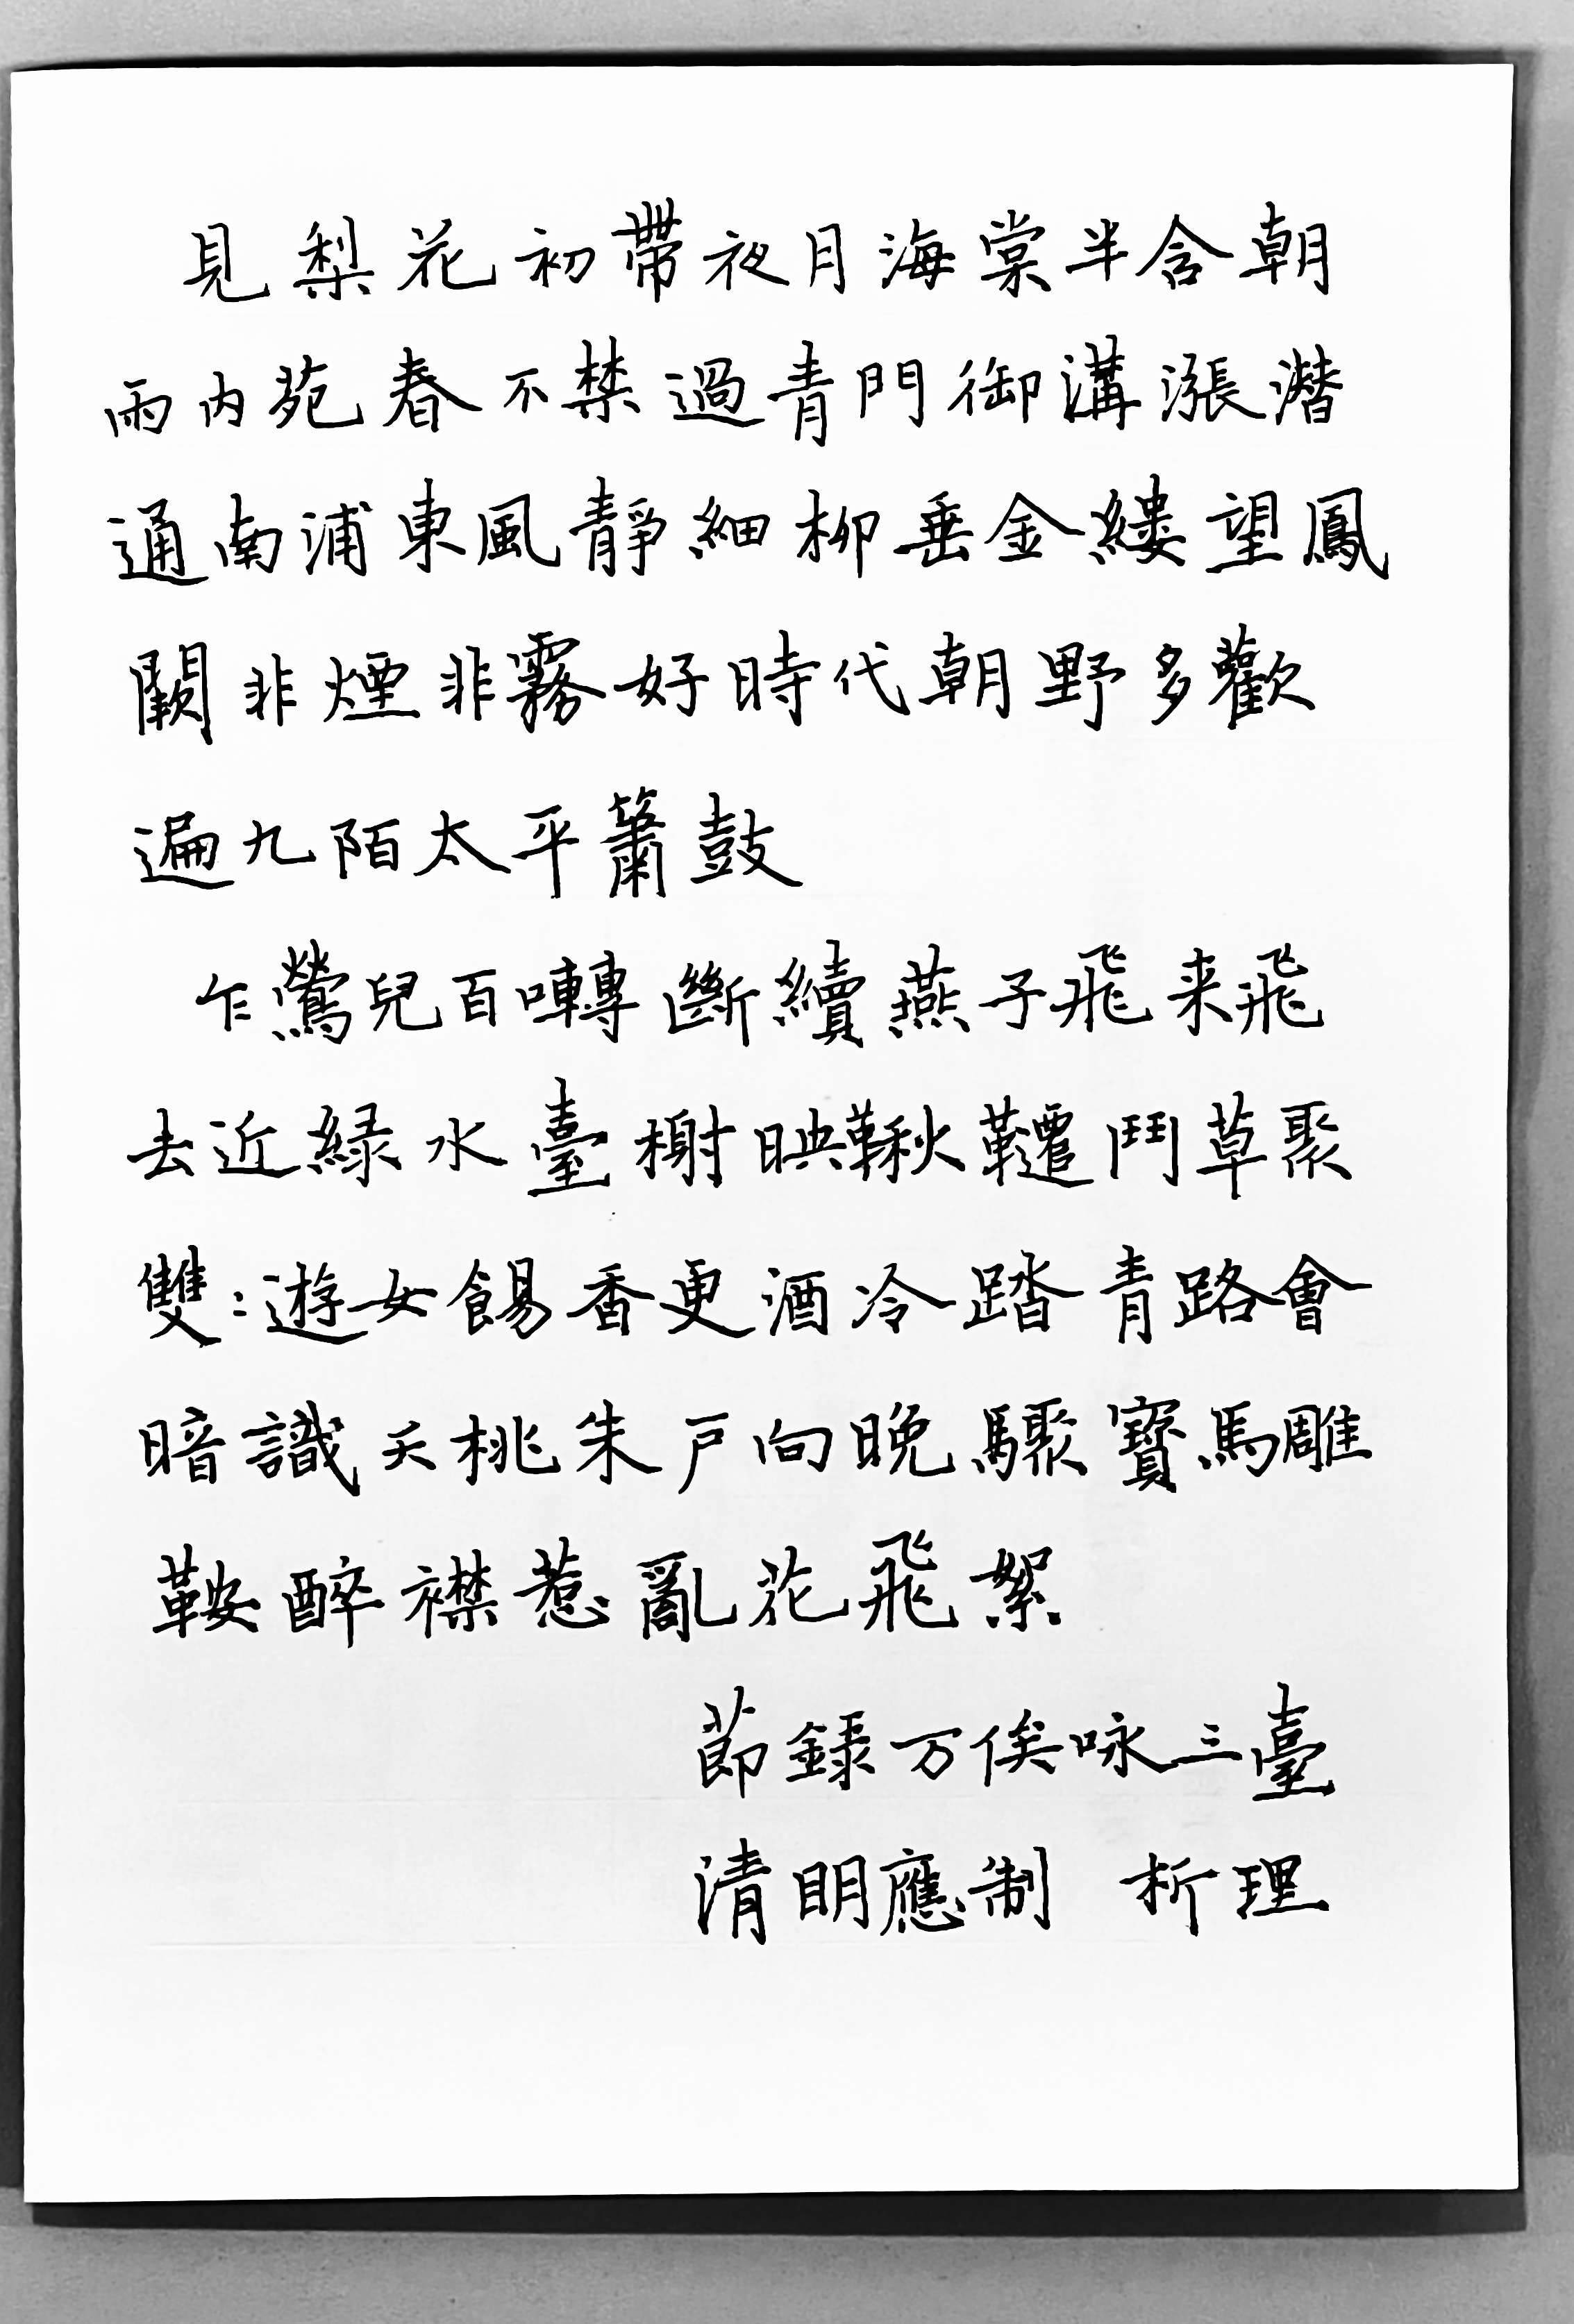 見梨花初帶夜月海棠半含朝
雨内苑春不禁過青門御溝漲潛
通南浦東風靜細柳垂金縷望鳳
闕非煙非霧好時代朝野多歡
遍九陌太平簫鼓
乍鶯兒百囀斷續燕子飛来飛
去近緑水臺榭映鞦韆鬥草聚
雙:遊女餳香更酒冷踏青路會
暗識夭桃朱戸向晚驟寶馬雕
鞍醉襟惹亂花飛絮
莭録万俟咏三臺
清明應制 析理